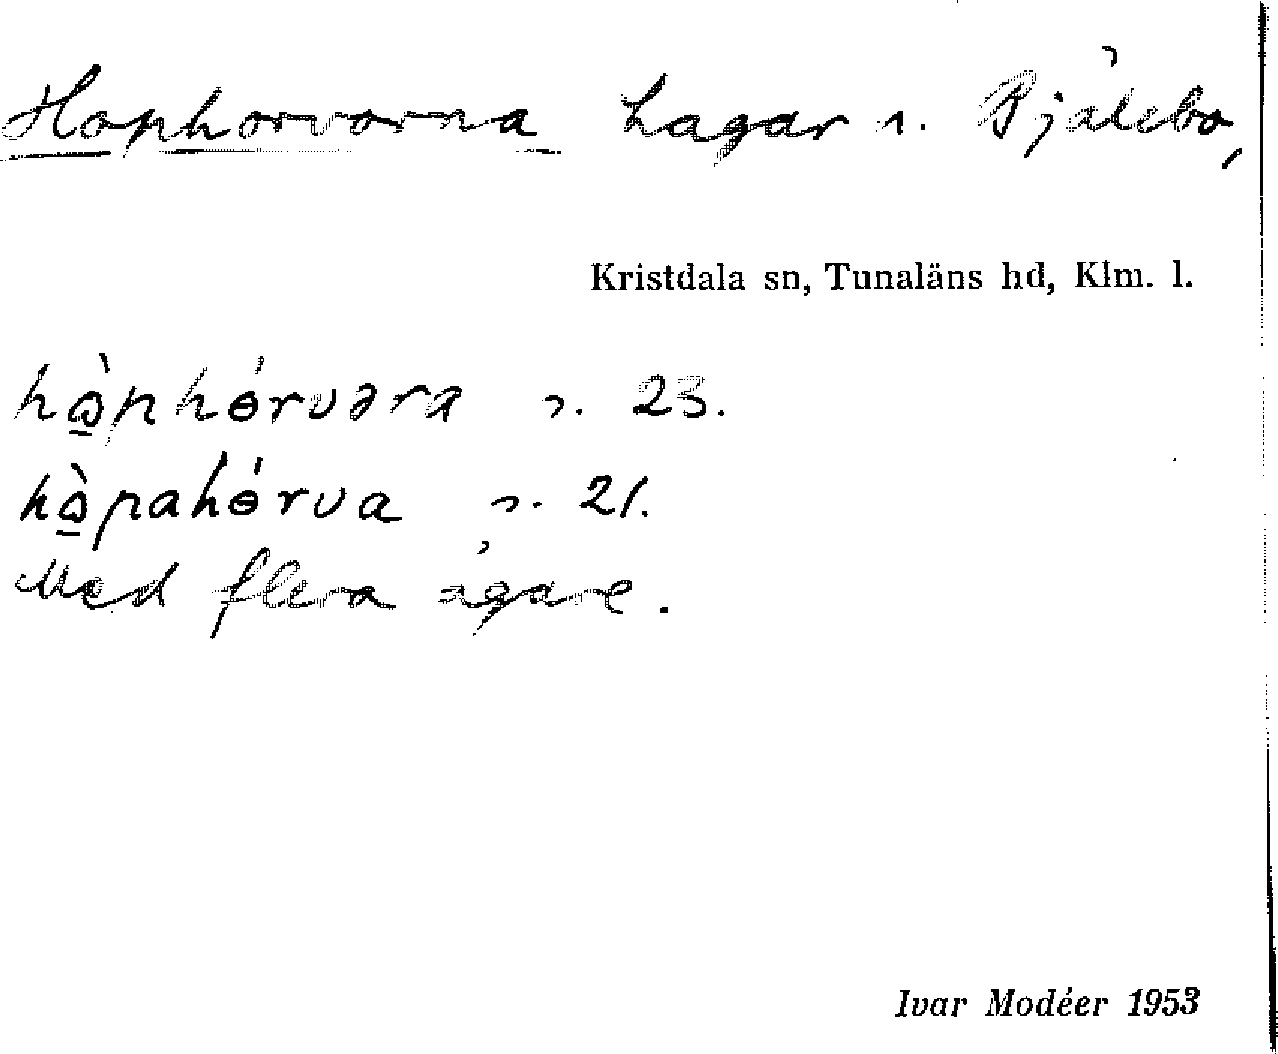 Hophorvorna Hagar i. Bjälebo,
Kristdala sn, Tunaläns hd, Klm. l.
hòphórvəra s. 23.
hòpahórva s. 21.
Med flera ägare.
Ivar Modéer 1953